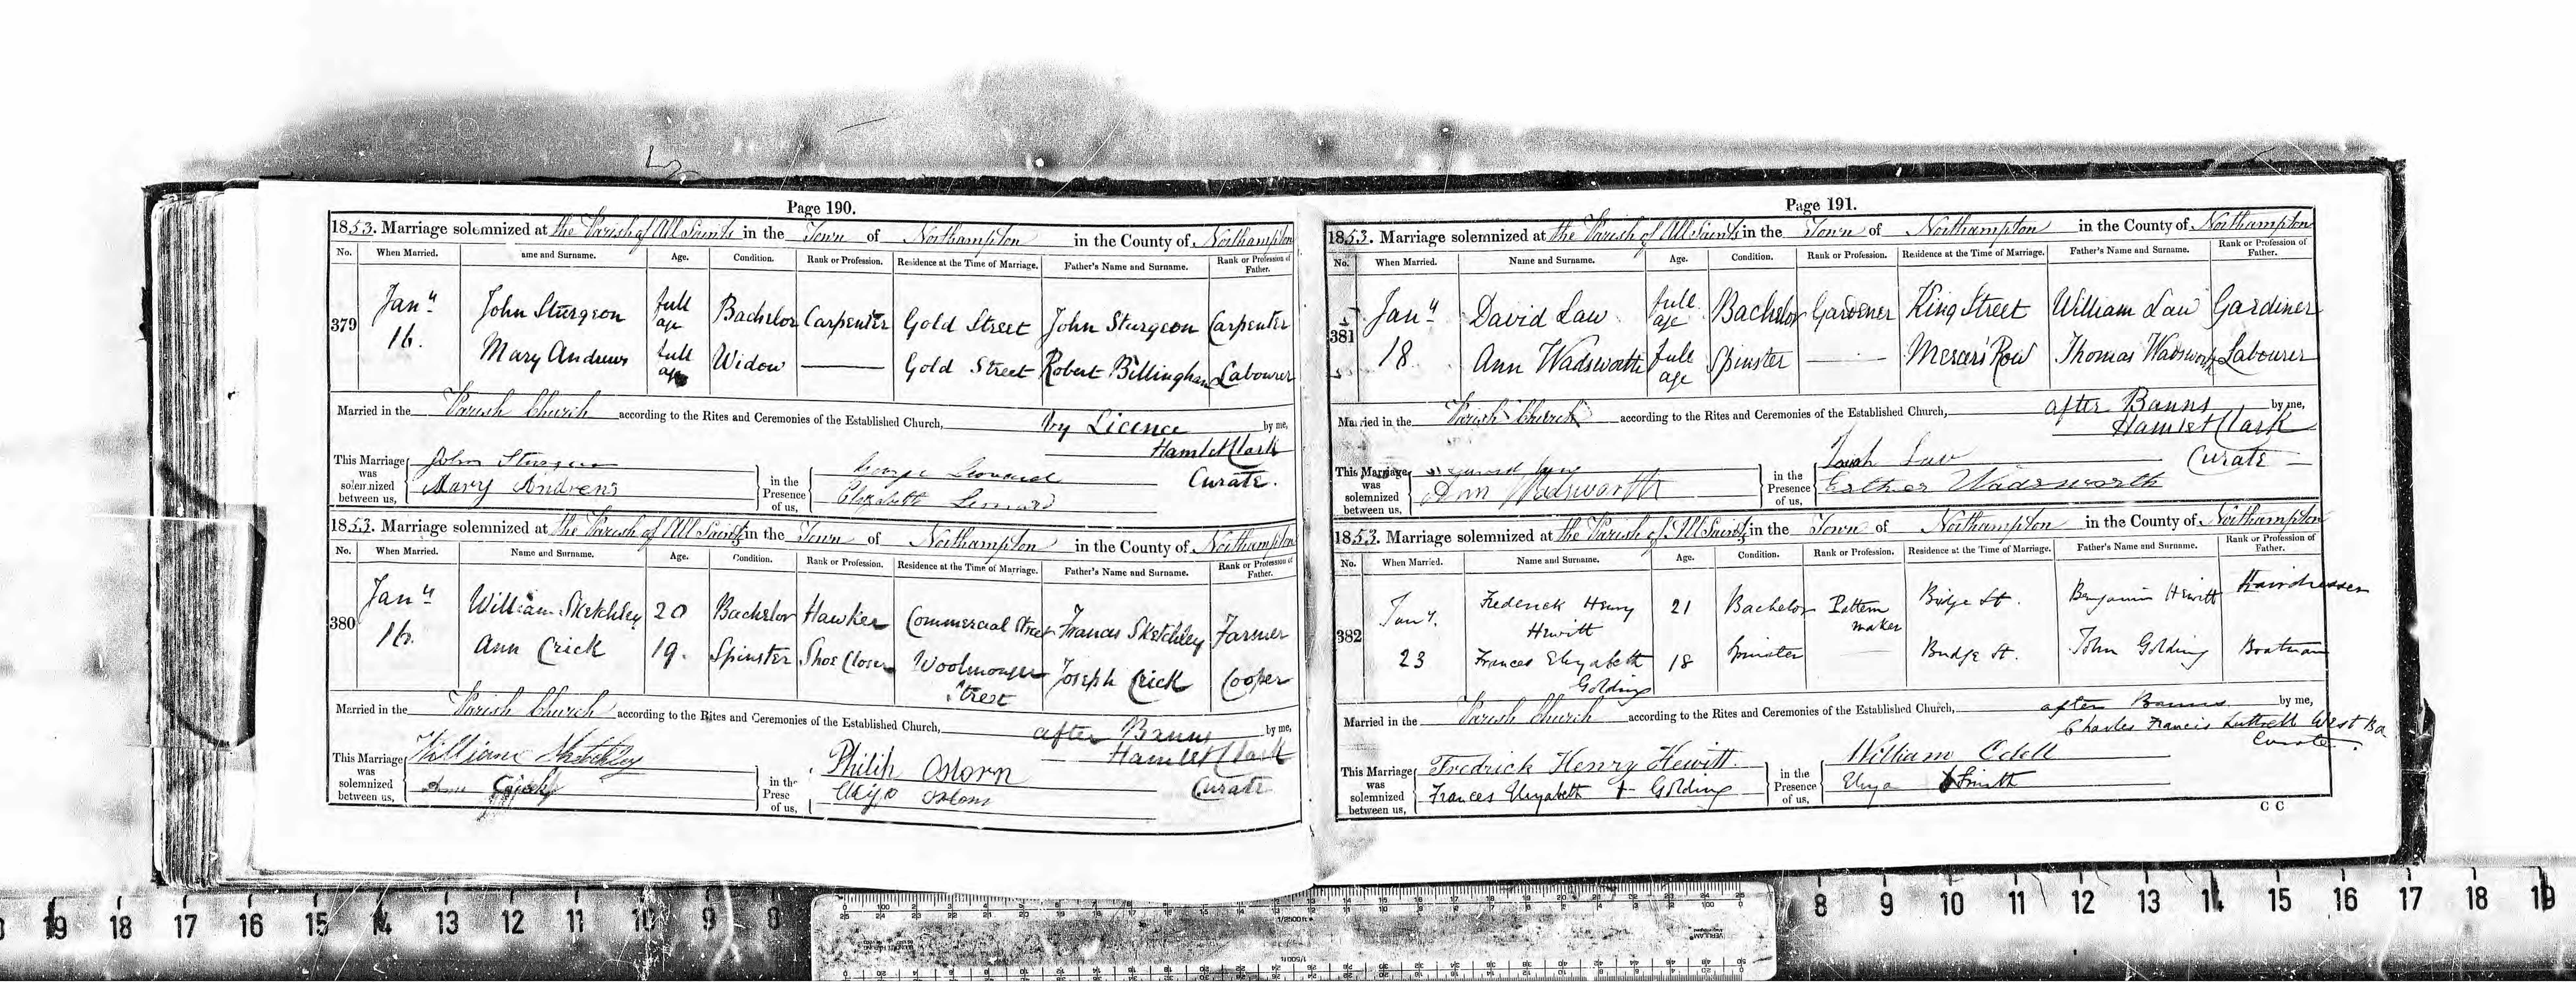 Page 190.
1853. Marriage solemnized at the Parish of All Saints in the Town of Northampton in the County of Northampton
No. When Married. ame and Surname. Age. Condition. Rank or Profession. Residence at the Time of Marriage. Father's Name and Surname. Rank or Profession of Father.
379 Jany 16. John Sturgeon full age Bachelor Carpenter Gold Street John Sturgeon Carpenter
Mary Andrews full age Widow Gold Street Robert Billingham Labourer
Married in the Parish Church according to the Rites and Ceremonies of the Established Church, by Licence by me,
Hamlet Clark
Curate.
This Marriage was solemnized between us, John Sturgeon Mary Andrews in the Presence of us, George Leonard Elizabeth Leonard
1853. Marriage solemnized at the Parish of All Saints in the Town of Northampton in the County of Northampton
No. When Married. Name and Surname. Age. Condition. Rank or Profession. Residence at the Time of Marriage. Father's Name and Surname. Rank or Profession of Father.
380 Jany 16. William Sketchley 20 Bachelor Hawker Commercial Street Francis Sketchley Farmer
Ann Crick 19. Spinster Shoe Closer Woolmonger Street Joseph Crick Cooper
Married in the Parish Church according to the Rites and Ceremonies of the Established Church, after Banns by me,
Hamlet Clark
Curate
This Marriage was solemnized between us, William Sketchley Ann in the Prese of us, Philip Osborn
Page 191.
1853. Marriage solemnized at the Parish of All Saints in the Town of Northampton in the County of Northampton
No. When Married. Name and Surname. Age. Condition. Rank or Profession. Residence at the Time of Marriage. Father's Name and Surname. Rank or Profession of Father.
381 Jany 18. David Law full age Bachelor Gardener King Street William Law Gardiner
Ann Wadsworth full age Spinster Mercers Row Thomas Wadsworth Labourer
Married in the Parish Church according to the Rites and Ceremonies of the Established Church, after Banns by me,
Hamlet Clark
Curate
This Marriage was solemnized between us, Ann Wadsworth in the Presence of us, Law Esther Wadsworth
1853. Marriage solemnized at the Parish of All Saints in the Town of Northampton in the County of Northampton
No. When Married. Name and Surname. Age. Condition. Rank or Profession. Residence at the Time of Marriage. Father's Name and Surname. Rank or Profession of Father.
382 Jany. 23 Frederick Henry Hewitt 21 Bachelor Pattern maker Bridge St. Benjamin Hewitt Hairdresser
Frances Elizabeth Golding 18 Spinster Bridge St. John Golding Boatman
Married in the Parish Church according to the Rites and Ceremonies of the Established Church, after Banns by me,
Charles Francis Luttrell West
Curate.
This Marriage was solemnized between us, Fredrick Henry Hewitt Frances Elizabeth Golding in the Presence of us, William Odell Eliza Smith
C C
19 18 17 16 15 14 13 12 11 10 9 8
8 9 10 11 12 13 14 15 16 17 18 19